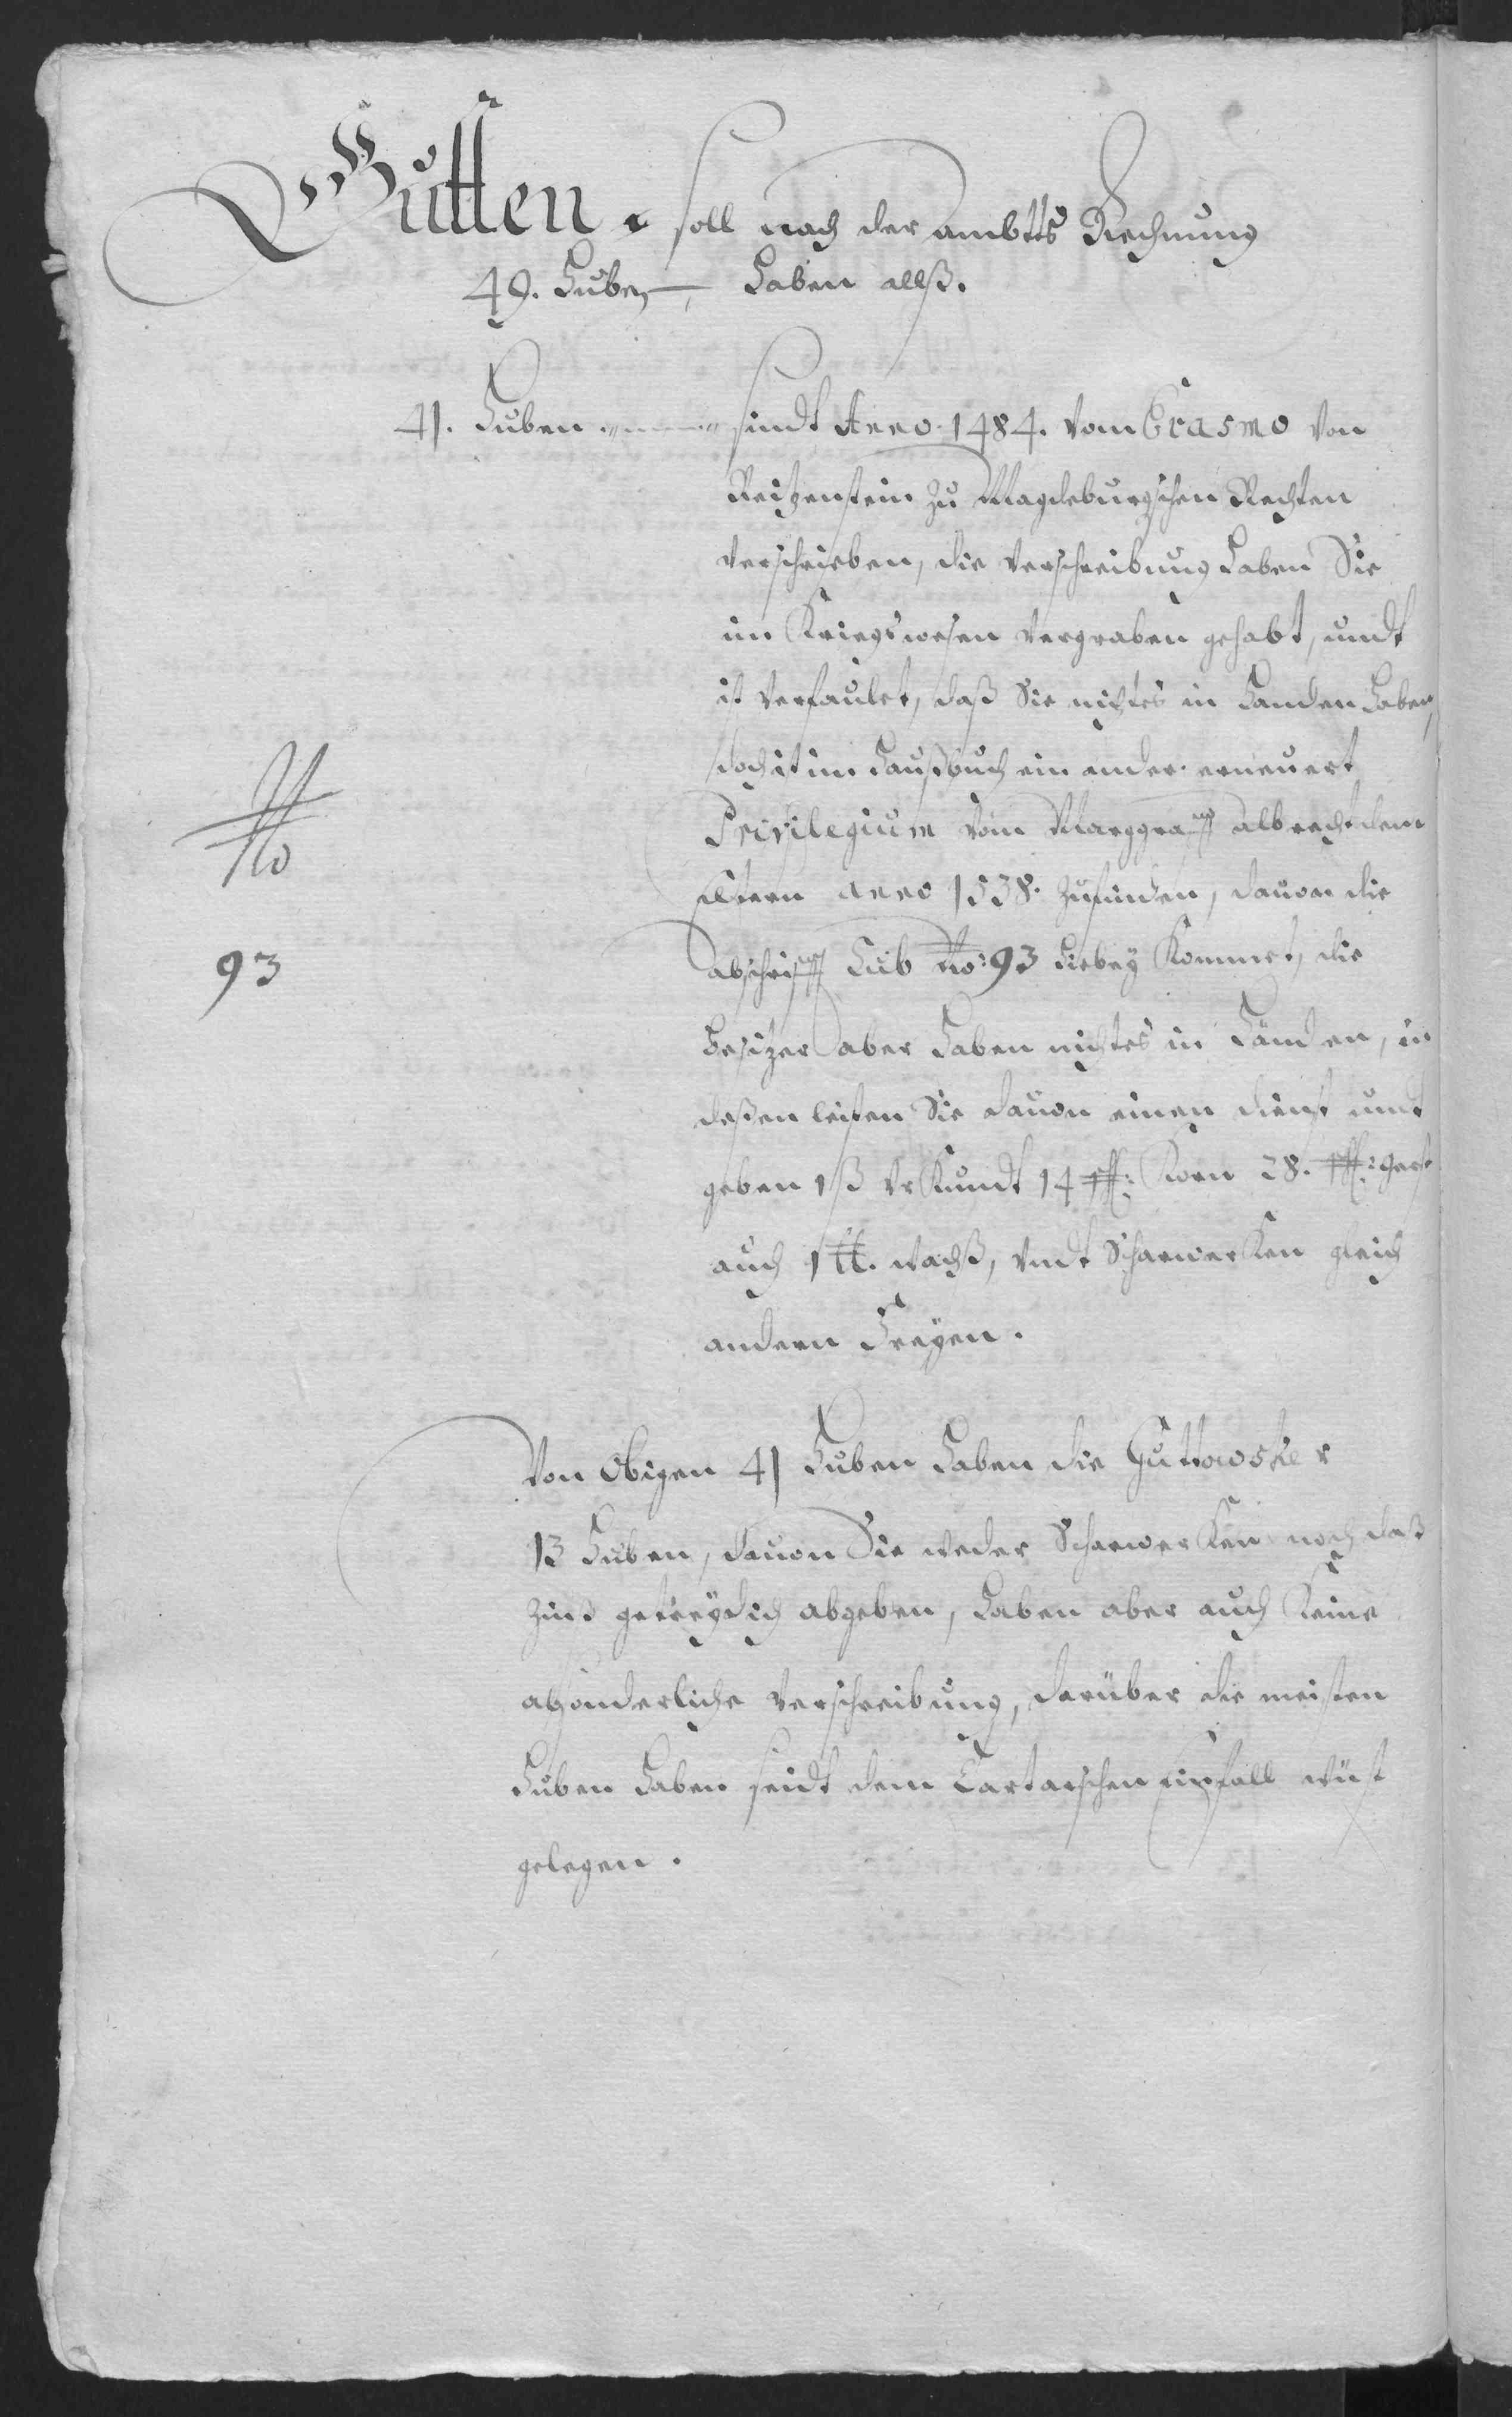 Gutten. soll nach der ambtts Rechnung
49. Huben, haben allß.
41. Huben sindt Anno 1484. vom Erasmo von
Reitzenstein zu Magdeburgschen Rechten
verschrieben, die verschreibung haben Sie
im Kriegswesen vergraben gehabt, undt
ist verfaulet, daß Sie nichtes in handen haben,
doch ist im Haußbuch ein ander erneuert
Privilegium vom Marggraff albrecht dem
Eltern anno 1538. zufinden, dauon die
No
93
abschrifft Sub No: 93 hiebey Kommet, die
besitzer aber haben nichtes in Händen, in
deßen leisten Sie dauon einen dienst undt
geben 1 ß vrkundt 14 schff: Korn 28. schff: gerst
auch 1 tt. wachß, vndt Scharwerken gleich
andern Freyen.
Von Obigen 41 Huben haben die Guttowsker
13 Huben, dauon Sie weder Scharwerken noch daß
Zinß getreydich abgeben, haben aber auch Keine
absonderliche verschreibung, darüber die meisten
Huben haben seidt dem Tartarschen einfall wüst
gelegen.